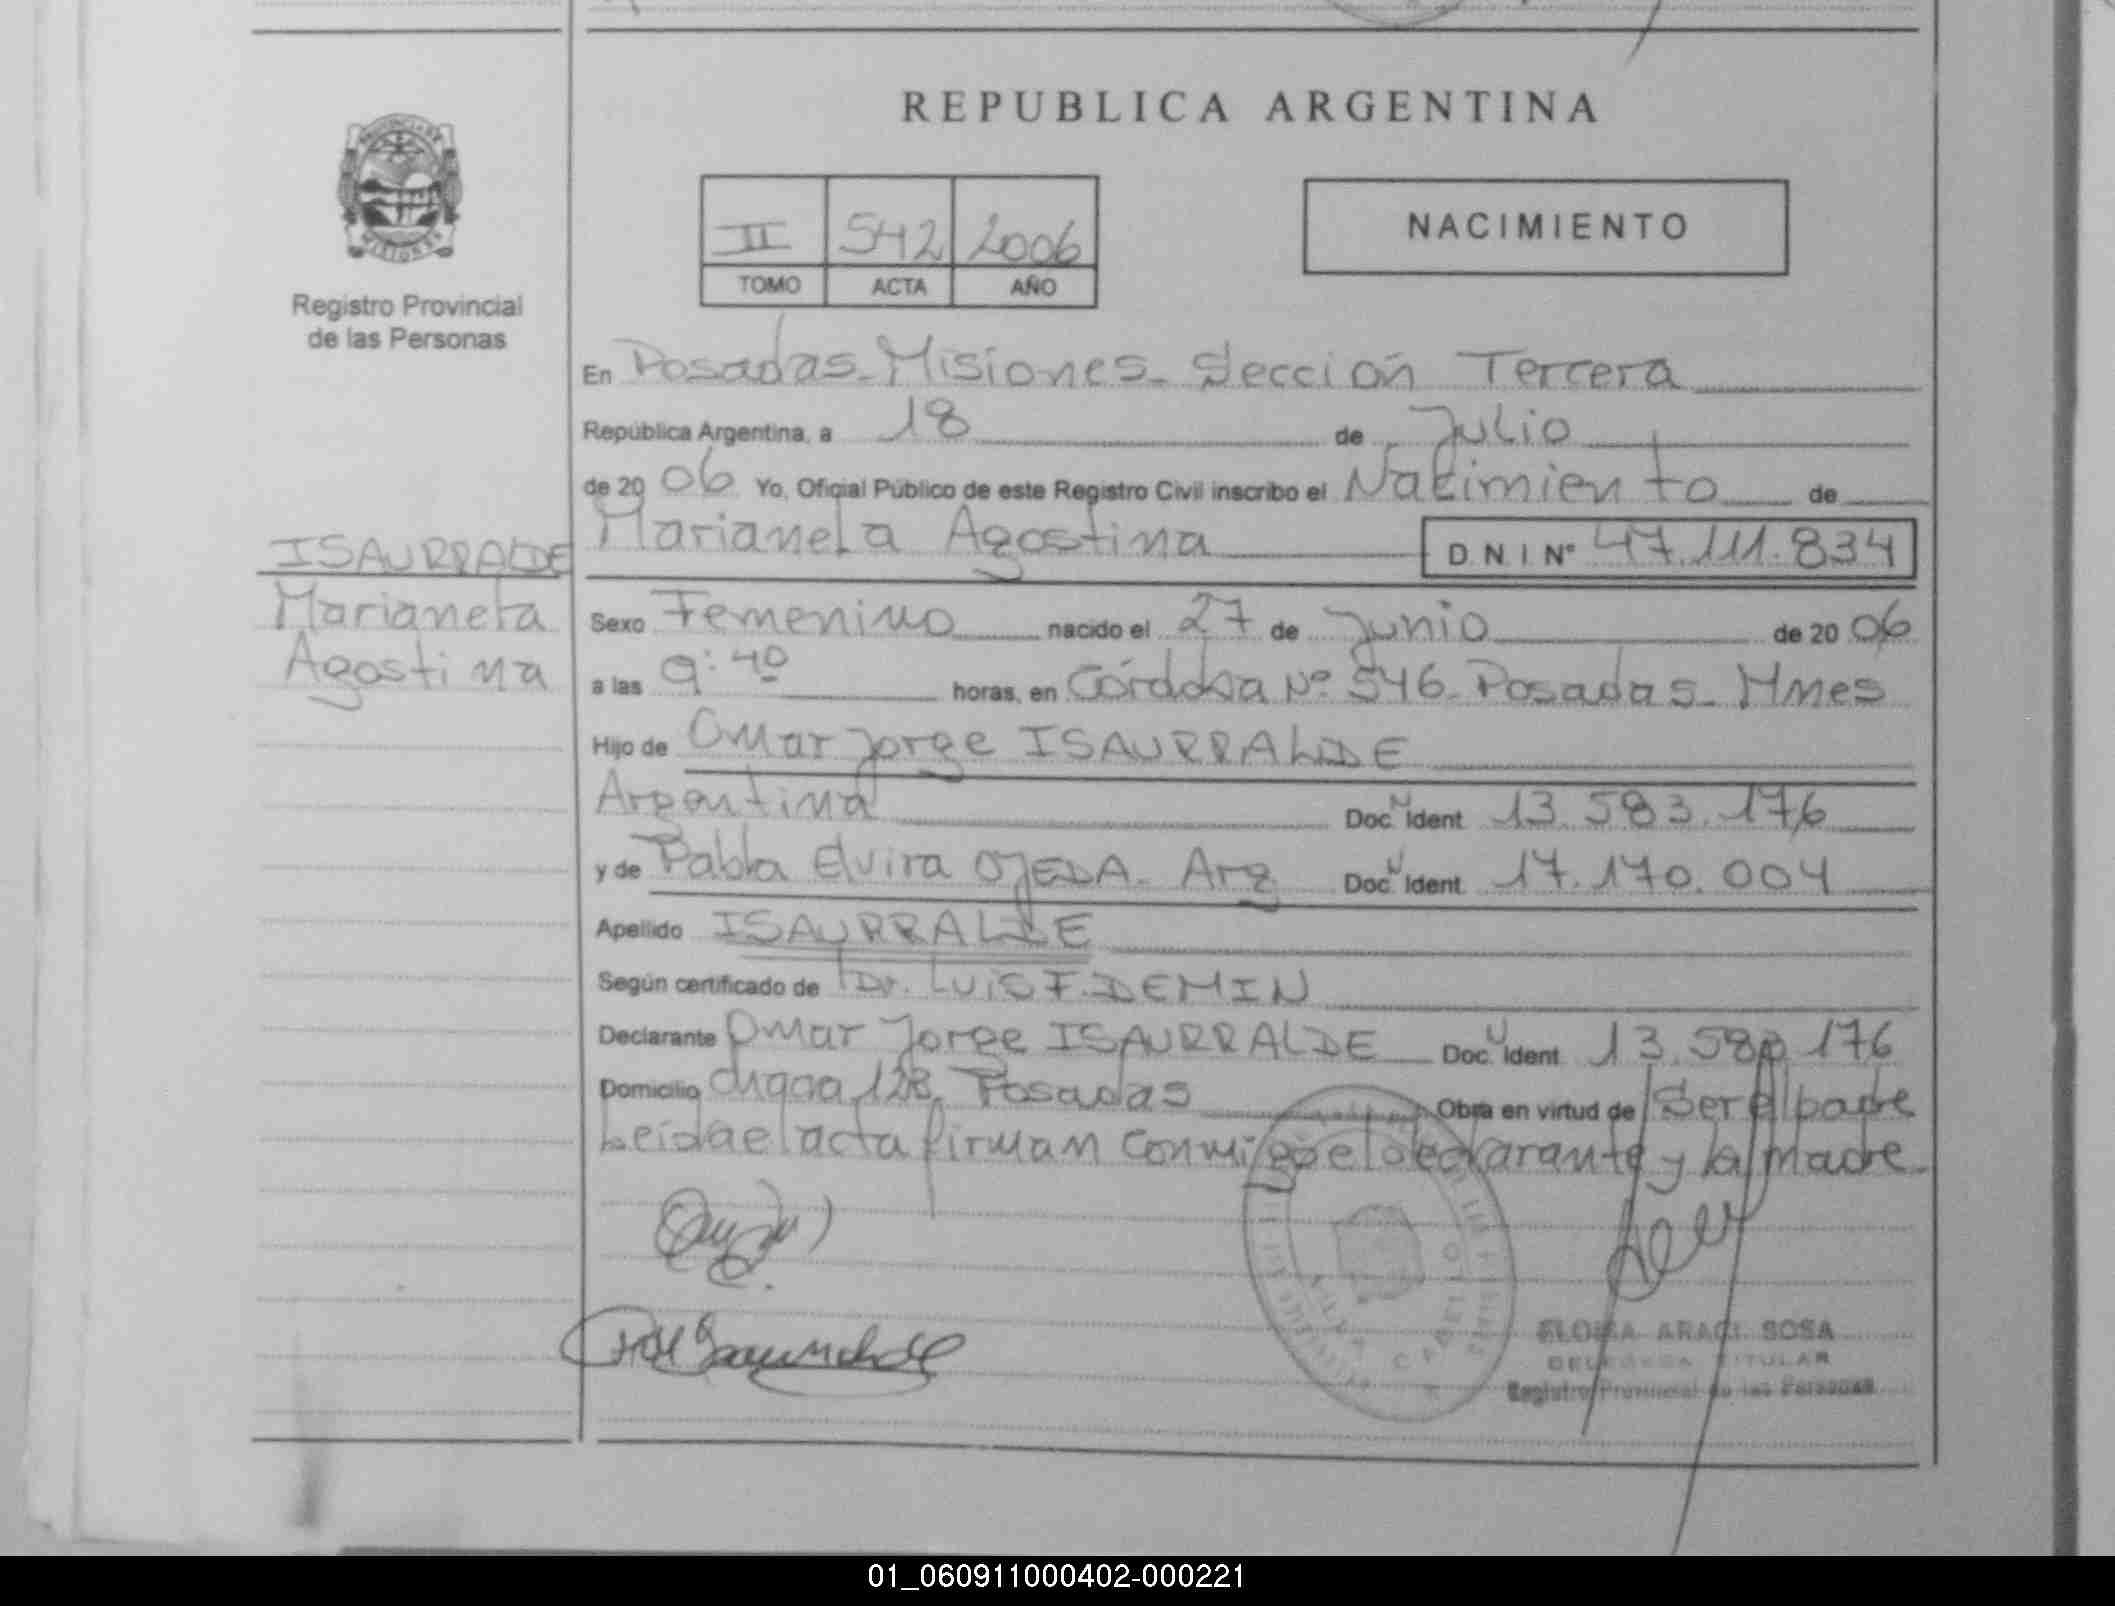 REPUBLICA ARGENTINA
PROVINCIA DE
MISIONES
Registro Provincial
de las Personas
II 542 2006
TOMO ACTA AÑO
NACIMIENTO
En Posadas-Misiones- Sección Tercera
República Argentina, a 18 de Julio
de 2006 Yo, Oficial Público de este Registro Civil inscribo el Nacimiento de
Marianela Agostina D.N.I Nº 47.111.834
ISAURRALDE
Marianela
Agostina
Sexo Femenino nacido el 27 de Junio de 2006
a las 9:40 horas, en Córdoba Nº 546- Posadas- Mnes
Hijo de Omar Jorge ISAURRALDE
Argentina Doc. N Ident 13.583.176
y de Pabla Elvira OJEDA- Arg Doc. U Ident 17.170.004
Apellido ISAURRALDE
Según certificado de Dr. LUIS F. DEMIN
Declarante Omar Jorge ISAURRALDE Doc. U Ident 13.583.176
Domicilio 128. Posadas Obra en virtud de Ser el padre
Leída el acta firman conmigo el declarante y la madre-
ARACI SOSA
DELEGADA TITULAR
Registro Provincial de las Personas
01_060911000402-000221